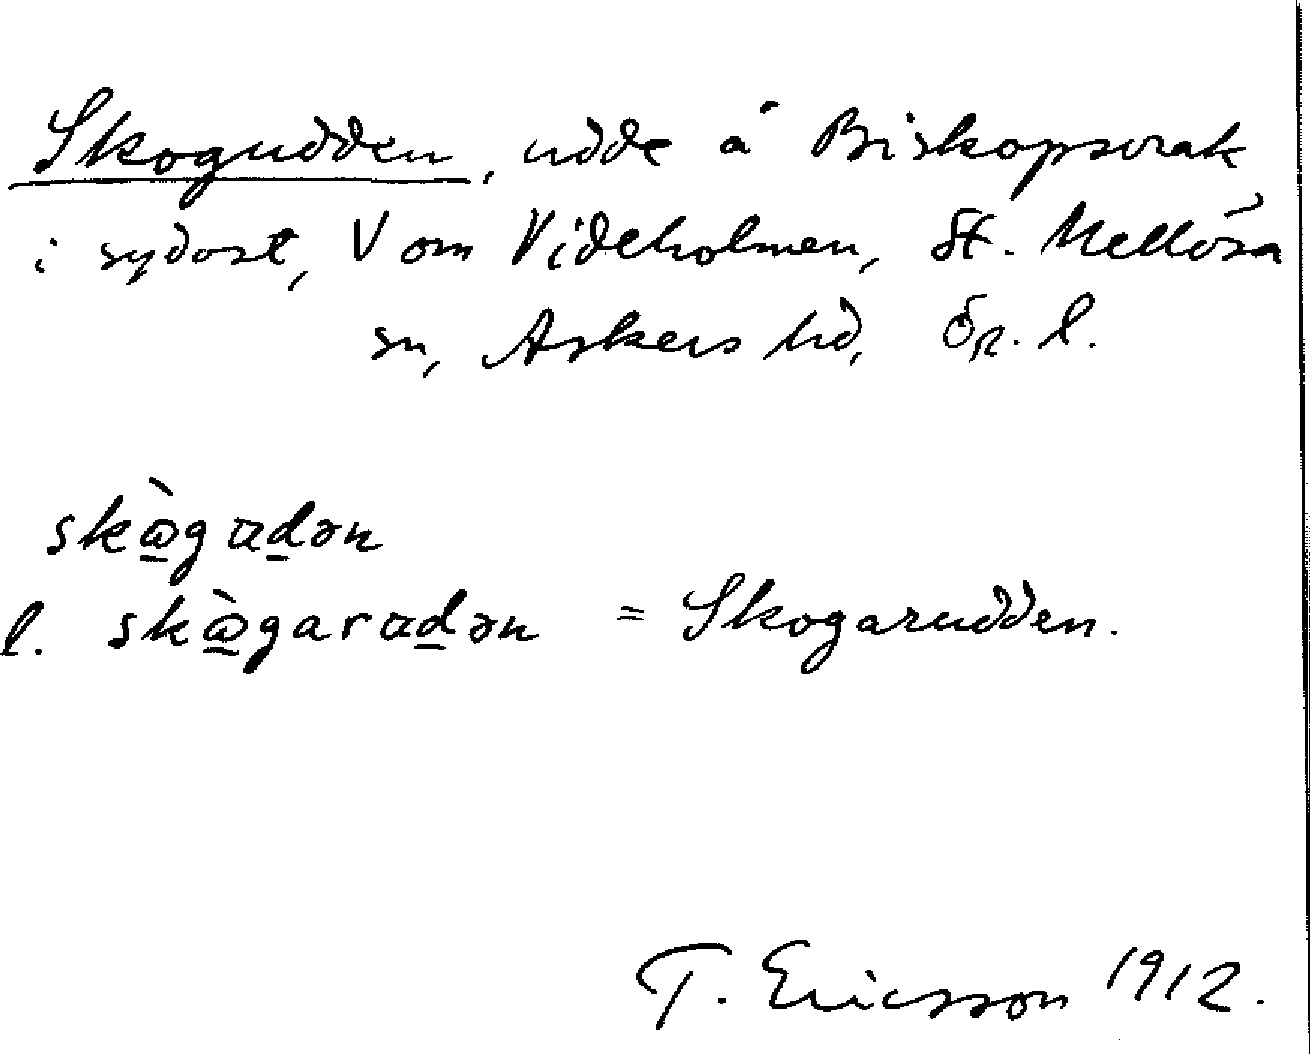 Skogudden, udde å Biskopsvrak
i sydost, V om Videholmen, St. Mellösa
sn, Askers hd, Ör. l.
skàgadən
l. skàgaradən = Skogarudden.
T. Ericsson 1912.